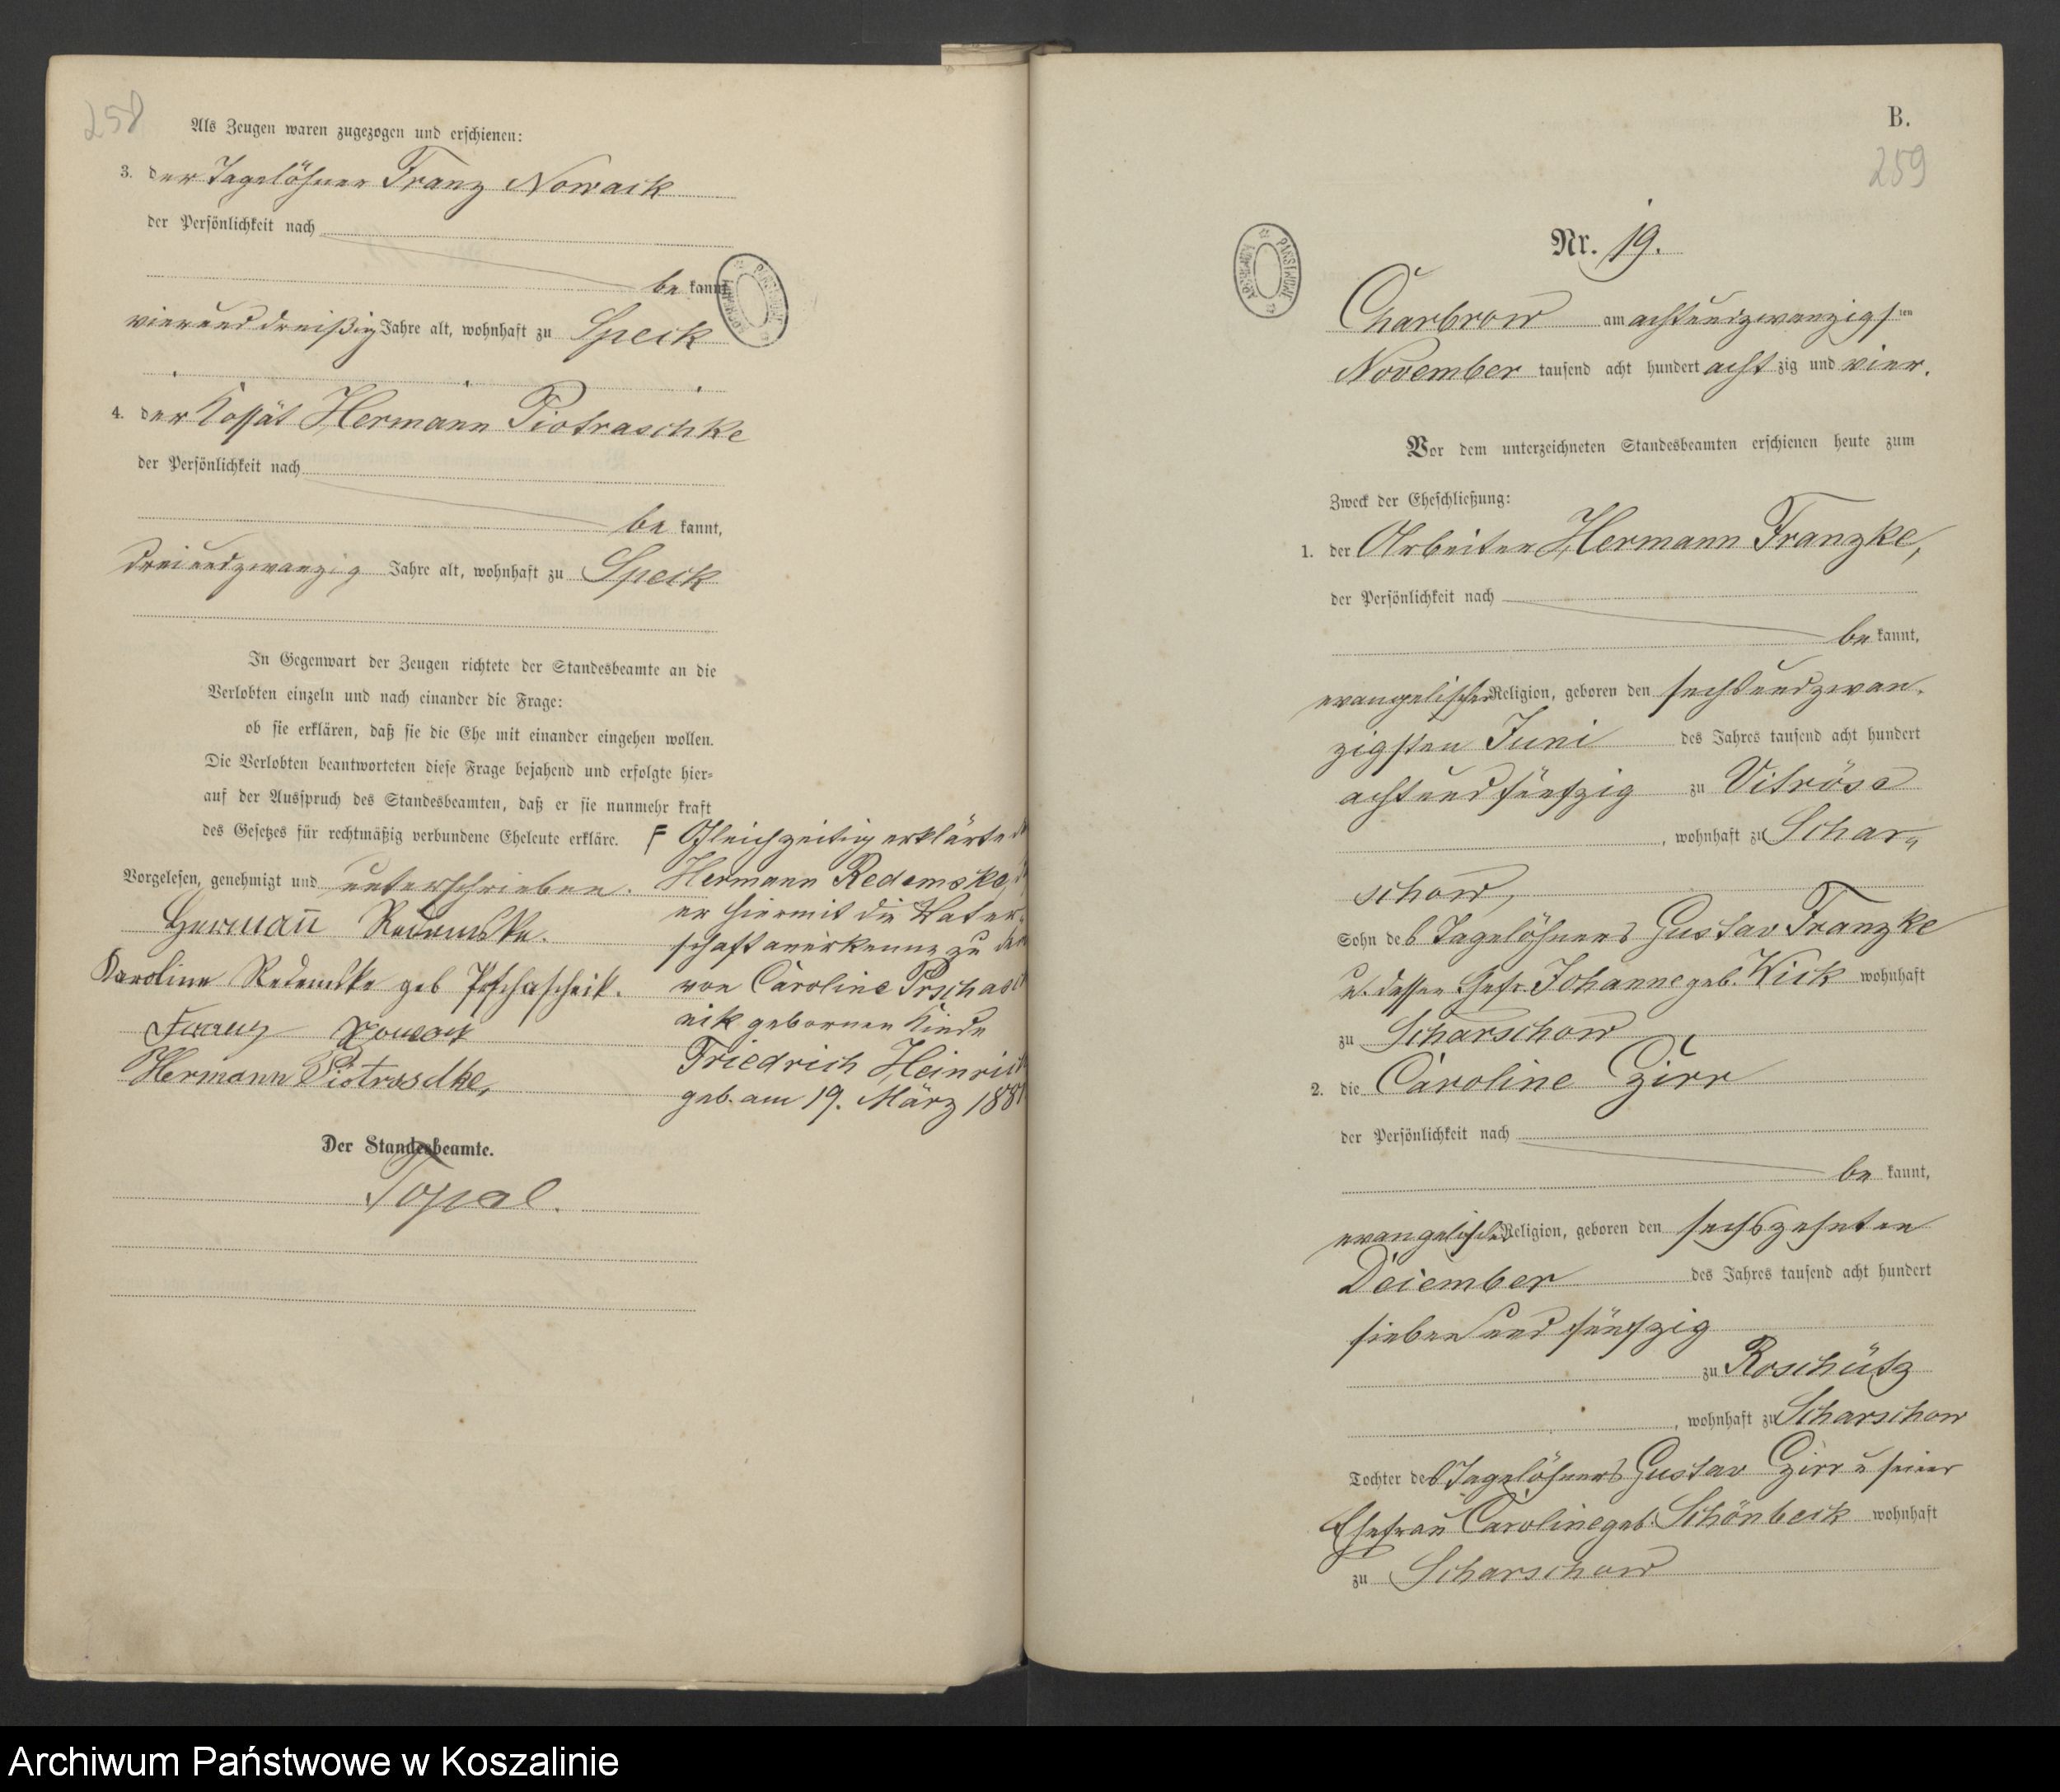 258
Als Zeugen waren zugezogen und erschienen:
3. der Tagelöhner Franz Nowack
der Persönlichkeit nach
be kannt,
vierunddreißig Jahre alt, wohnhaft zu Speck
4. der Kossät Hermann Piotraschke
der Persönlichkeit nach
be kannt,
dreiundzwanzig Jahre alt, wohnhaft zu Speck
In Gegenwart der Zeugen richtete der Standesbeamte an die
Verlobten einzeln und nach einander die Frage:
ob sie erklären, daß sie die Ehe mit einander eingehen wollen.
Die Verlobten beantworteten diese Frage bejahend und erfolgte hier=
auf der Ausspruch des Standesbeamten, daß er sie nunmehr kraft
des Gesetzes für rechtmäßig verbundene Eheleute erkläre.
Vorgelesen, genehmigt und unterschrieben.
Hermann Redemske.
Karoline Redemske geb
Franz Nowack
Hermann Piotraschke,
F Gleichzeitig erklärte
Hermann Redemske,
er hiermit die Vater-
schaft anerkenne zu dem
von Caroline Prschasch
nik gebornen Kinde
Friedrich Heinrich
geb. am 19. März 188
Der Standesbeamte.
Topel.
B.
259
Nr. 19.
Charbrow am achtundzwanzigsten
November tausend acht hundert achtzig und vier.
Vor dem unterzeichneten Standesbeamten erschienen heute zum
Zweck der Eheschließung:
1. der Arbeiter Hermann Franzke,
der Persönlichkeit nach
be kannt,
evangelischer Religion, geboren den sechsundzwan-
zigsten Juni des Jahres tausend acht hundert
achtundfünfzig zu Vitröse
, wohnhaft zu Schar-
schow,
Sohn des Tagelöhners Gustav Franzke
u. dessen Ehefr. Johanne geb. Wick wohnhaft
zu Scharschow
2. die Caroline Zirr
der Persönlichkeit nach
be kannt,
evangelischer Religion, geboren den sechszehnten
December des Jahres tausend acht hundert
sieben und fünfzig
zu Roschütz
, wohnhaft zu Scharschow
Tochter des Tagelöhners Gustav Zirr u seiner
Ehefrau Caroline geb. Schönbeck wohnhaft
zu Scharschow
Archiwum Państwowe w Koszalinie